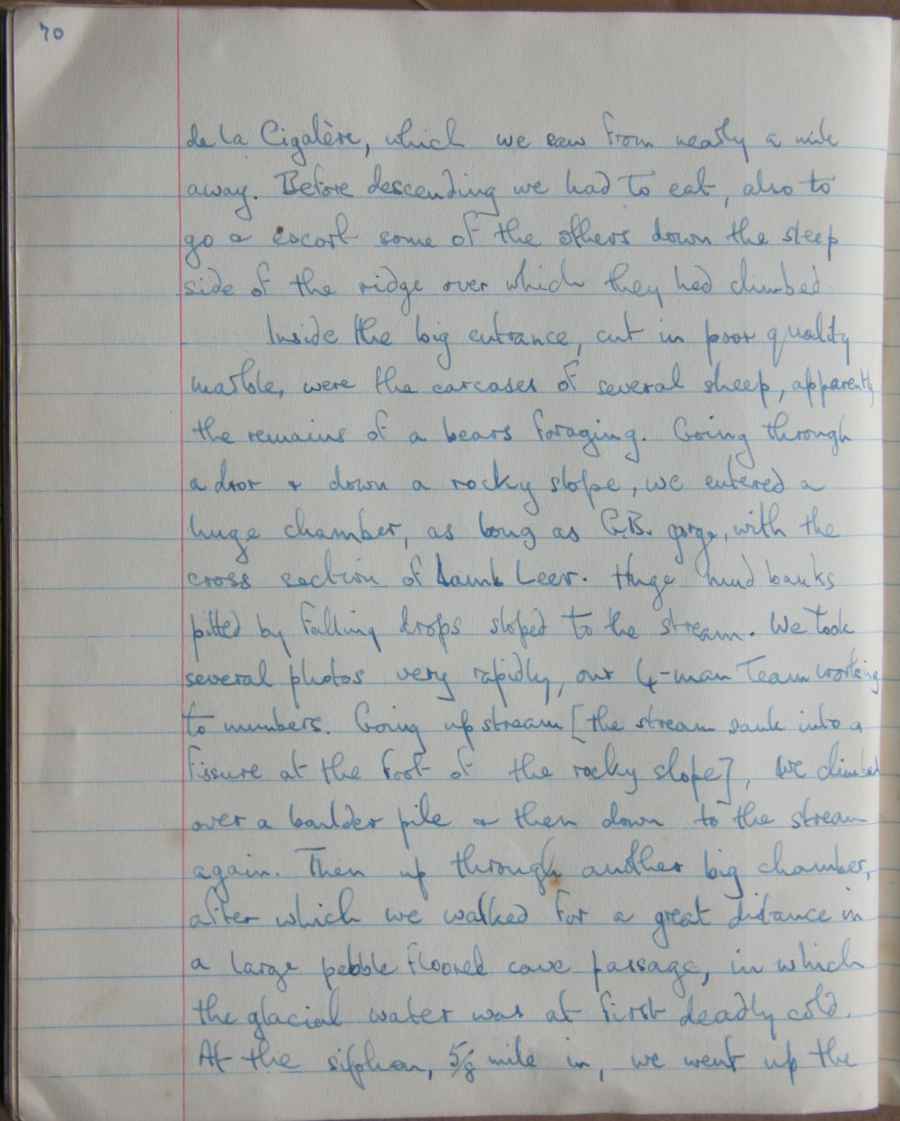 70
de la Cigalère, which we saw from nearly a mile
away. Before descending we had to eat, also to
go & escort some of the others down the steep
side of the ridge over which they had climbed.
Inside the big entrance, cut in poor quality
marble, were the carcases of several sheep, apparently
the remains of a bears foraging. Going through
a door & down a rocky slope, we entered a
huge chamber, as long as G.B. gorge, with the
cross section of Lamb Leer. Huge mud banks
pitted by falling drops sloped to the stream. We took
several photos very rapidly, our 4-man team working
to numbers. Going upstream [the stream sank into a
fissure at the foot of the rocky slope], we climbed
over a boulder pile & then down to the stream
again. Then up through another big chamber,
after which we walked for a great distance in
a large pebble floored cave passage, in which
the glacial water was at first deadly cold.
At the siphon, 5/8 mile in, we went up the